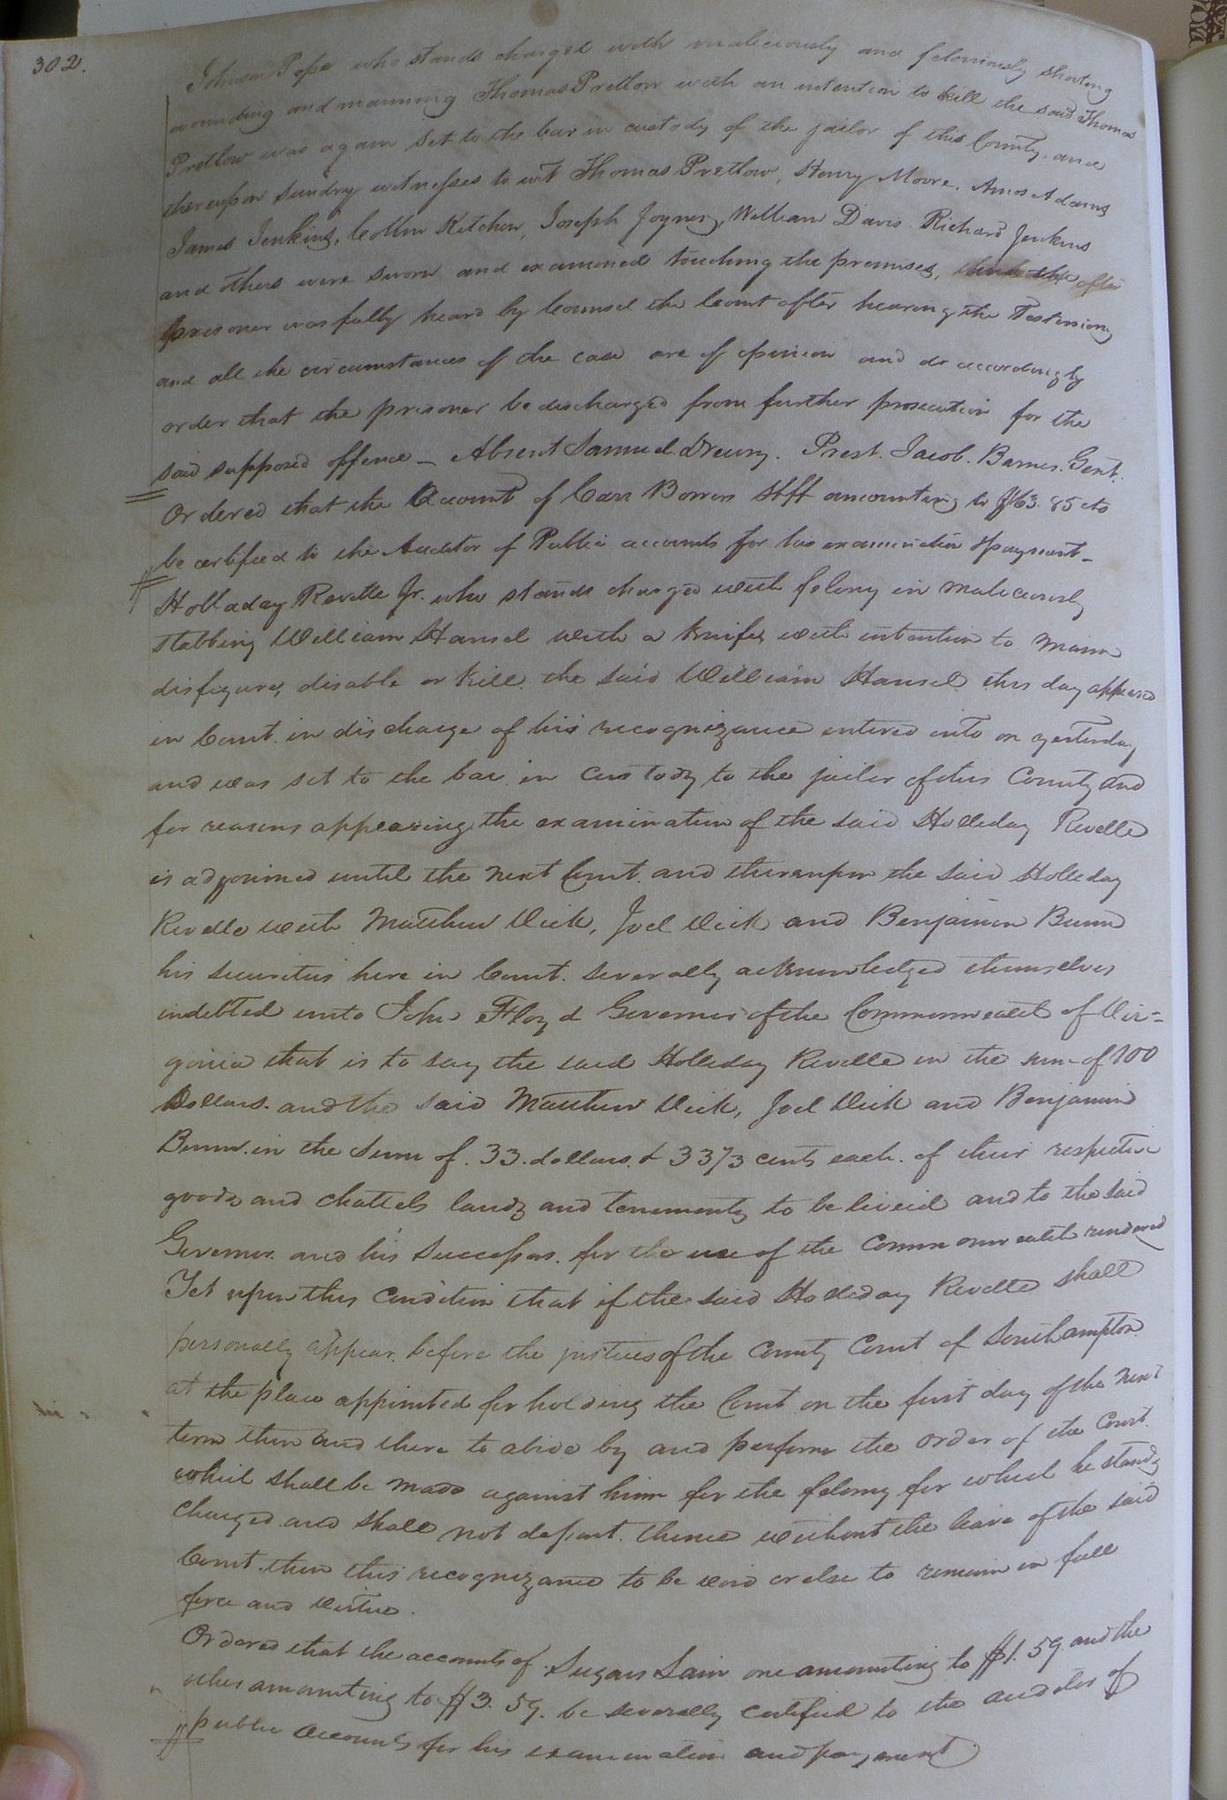 302.
Johnson Pope who stands charged with maliciously and feloniously shooting
wounding and maiming Thomas Pretlow with an intention to kill the said Thomas
Pretlow was again set to the bar in custody of the jailor of this County. and
thereupon sundry witnesses to wit Thomas Pretlow, Henry Moore, Amos Adams
James Jenkins, Collin Kitchen, Joseph Joyner, William Davis Richard Jenkins
and others were sworn and examined touching the premises, after
prisoner was fully heard by Counsel the Court after hearing the Testimony
and all the circumstances of the case are of opinion and do accordingly
order that the prisoner be discharged from further prosecution for the
said supposed offence — Absent Samuel Drewry. Prest. Jacob. Barnes. Gent.
Ordered that the Account of Carr Bowers Shff amounting to $163.85 cts
be certified to the Auditor of Public accounts for his examination & payment —
Holladay Revelle Jr. who stands charged with felony in maliciously
stabbing William Hansel with a knife with intention to maim
disfigure, disable or kill the said William Hansel this day appeared
in Court in discharge of his recognizance entered into on yesterday
and was set to the bar in custody to the jailer of this County and
for reasons appearing the examination of the said Holladay Revelle
is adjourned until the next Court. and thereupon the said Holladay
Revelle with Matthew Vick, Joel Vick and Benjamin Bunn
his securities here in Court. severally acknowledged themselves
indebted unto John Floyd Governor of the Commonwealth of Vir=
ginia that is to say the said Holladay Revelle in the sum of 100
Dollars. and the said Matthew Vick, Joel Vick and Benjamin
Bunn. in the sum of. 33. dollars. & 33 1/3 cents each. of their respective
goods and chattels lands and tenements to be levied and to the said
Governor. and his Successors. for the use of the commonwealth rendered
Yet upon this condition that if the said Holladay Revelle shall
personally appear. before the justices of the County Court of Southampton
at the place appointed for holding the Court on the first day of the next
term then and there to abide by and perform the order of the Court.
which shall be made against him for the felony for which he stands
charged and shall not depart. thence without the leave of the said
Court. then this recognizance to be void or else to remain in full
force and virtue.
Ordered that the accounts of Sugars Lain one amounting to $1.59 and the
other amounting to $3.59. be severally certified to the auditor of
public accounts for his examination and payment